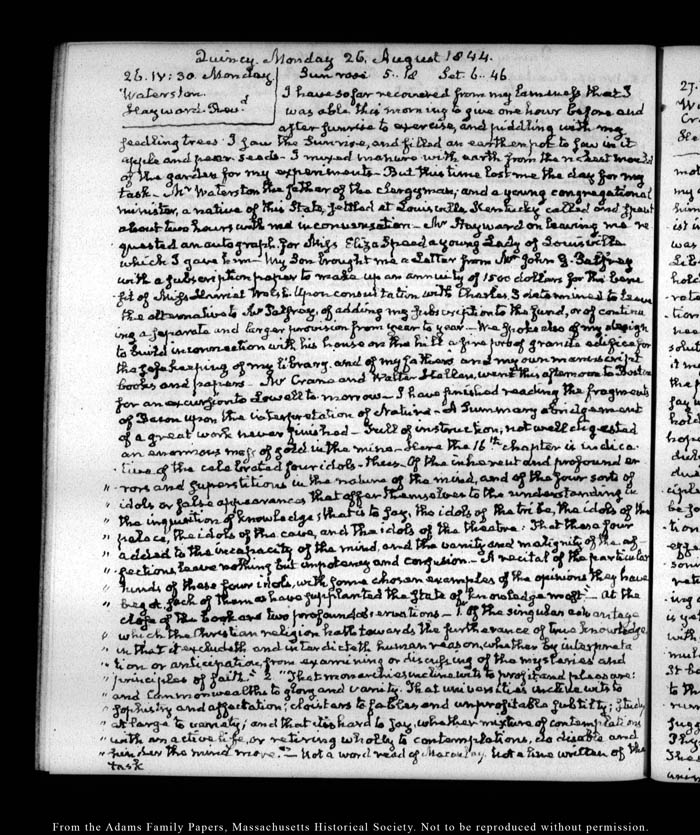 Quincy. Monday 26. August 1844.
26. IV: 30. Monday Sun rose 5..18 Set. 6..46
Waterston. I have so far recovered from my lameness that I
Hayward. Revd was able this morning to give one hour before and
after sunrise to exercise, and piddling with my
seedling trees. I saw the Sun rise, and filled an earthen pot to sow in it
apple and pear seeds. I mixed manure with earth from the richest
of the garden for my experiments. But this time lost me the day for my
task. Mr Waterston the father of the Clergyman; and a young congregational
minister, a native of this State, settled at Louisville Kentucky called and spent
about two hours with me in conversation— Mr Hayward on leaving me re
quested an autograph for Miss Eliza Speed a young Lady of Louisville
which I gave him— My Son brought me a Letter from Mr John G. Palfrey
with a subscription paper to make up an annuity of 1500 dollars for the bene
fit of Miss Harriet Welsh. Upon consultation with Charles I determined to leave
the alternative to Mr Palfrey, of adding my subscription to the fund, or of continu
ing a separate and larger provision from year to year— We spoke also of my design
to build in connection with his house on the hill a fire proof granite edifice for
the safe keeping of my library, and of my father's and my own manuscript
books and papers— Mr Crane and Walter Hellen, went this afternoon to Boston
for an excursion to Lowell to morrow— I have finished reading the fragments
of Bacon upon the interpretation of Nature— A Summary abridgement
of a great work never finished— Full of instruction, not well digested
an enormous mass of gold in the mine— Here the 16th chapter is indica
tive of the celebrated four idols— thus. Of the inherent and profound er
" rors and superstitions in the nature of the mind, and of the four sorts of
" idols or false appearances that offer themselves to the understanding in
" the inquisition of knowledge; that is to say, the idols of the tribe, the idols of the
" palace, the idols of the cave, and the idols of the theatre: That these four
" added to the incapacity of the mind, and the vanity and malignity of the af
" fections leave nothing but impotency and confusion— A recital of the particular
" kinds of these four idols, with some chosen examples of the opinions they have
" begot, such of them as have supplanted the state of knowledge most"— At the
close of the book are two profound observations— 1. "Of the singular advantage
" which the Christian religion hath towards the furtherance of true knowledge
" in that it excludeth and interdicteth human reason, whether by interpreta
" tion or anticipation, from examining or discussing of the mysteries and
" principles of faith." 2 "That monarchies incline wits to profit and pleasure:
" and Commonwealths to glory and vanity. That universities incline wits to
" sophistry and affectation; cloisters to fables and unprofitable subtilty; study
" at large to variety; and that it is hard to say, whether mixture of contemplations
" with an active life, or retiring wholly to contemplations, do disable and
" hinder the mind more."— Not a word read of Macaulay. Not a line written of the
task
From the Adams Family Papers, Massachusetts Historical Society. Not to be reproduced without permission.